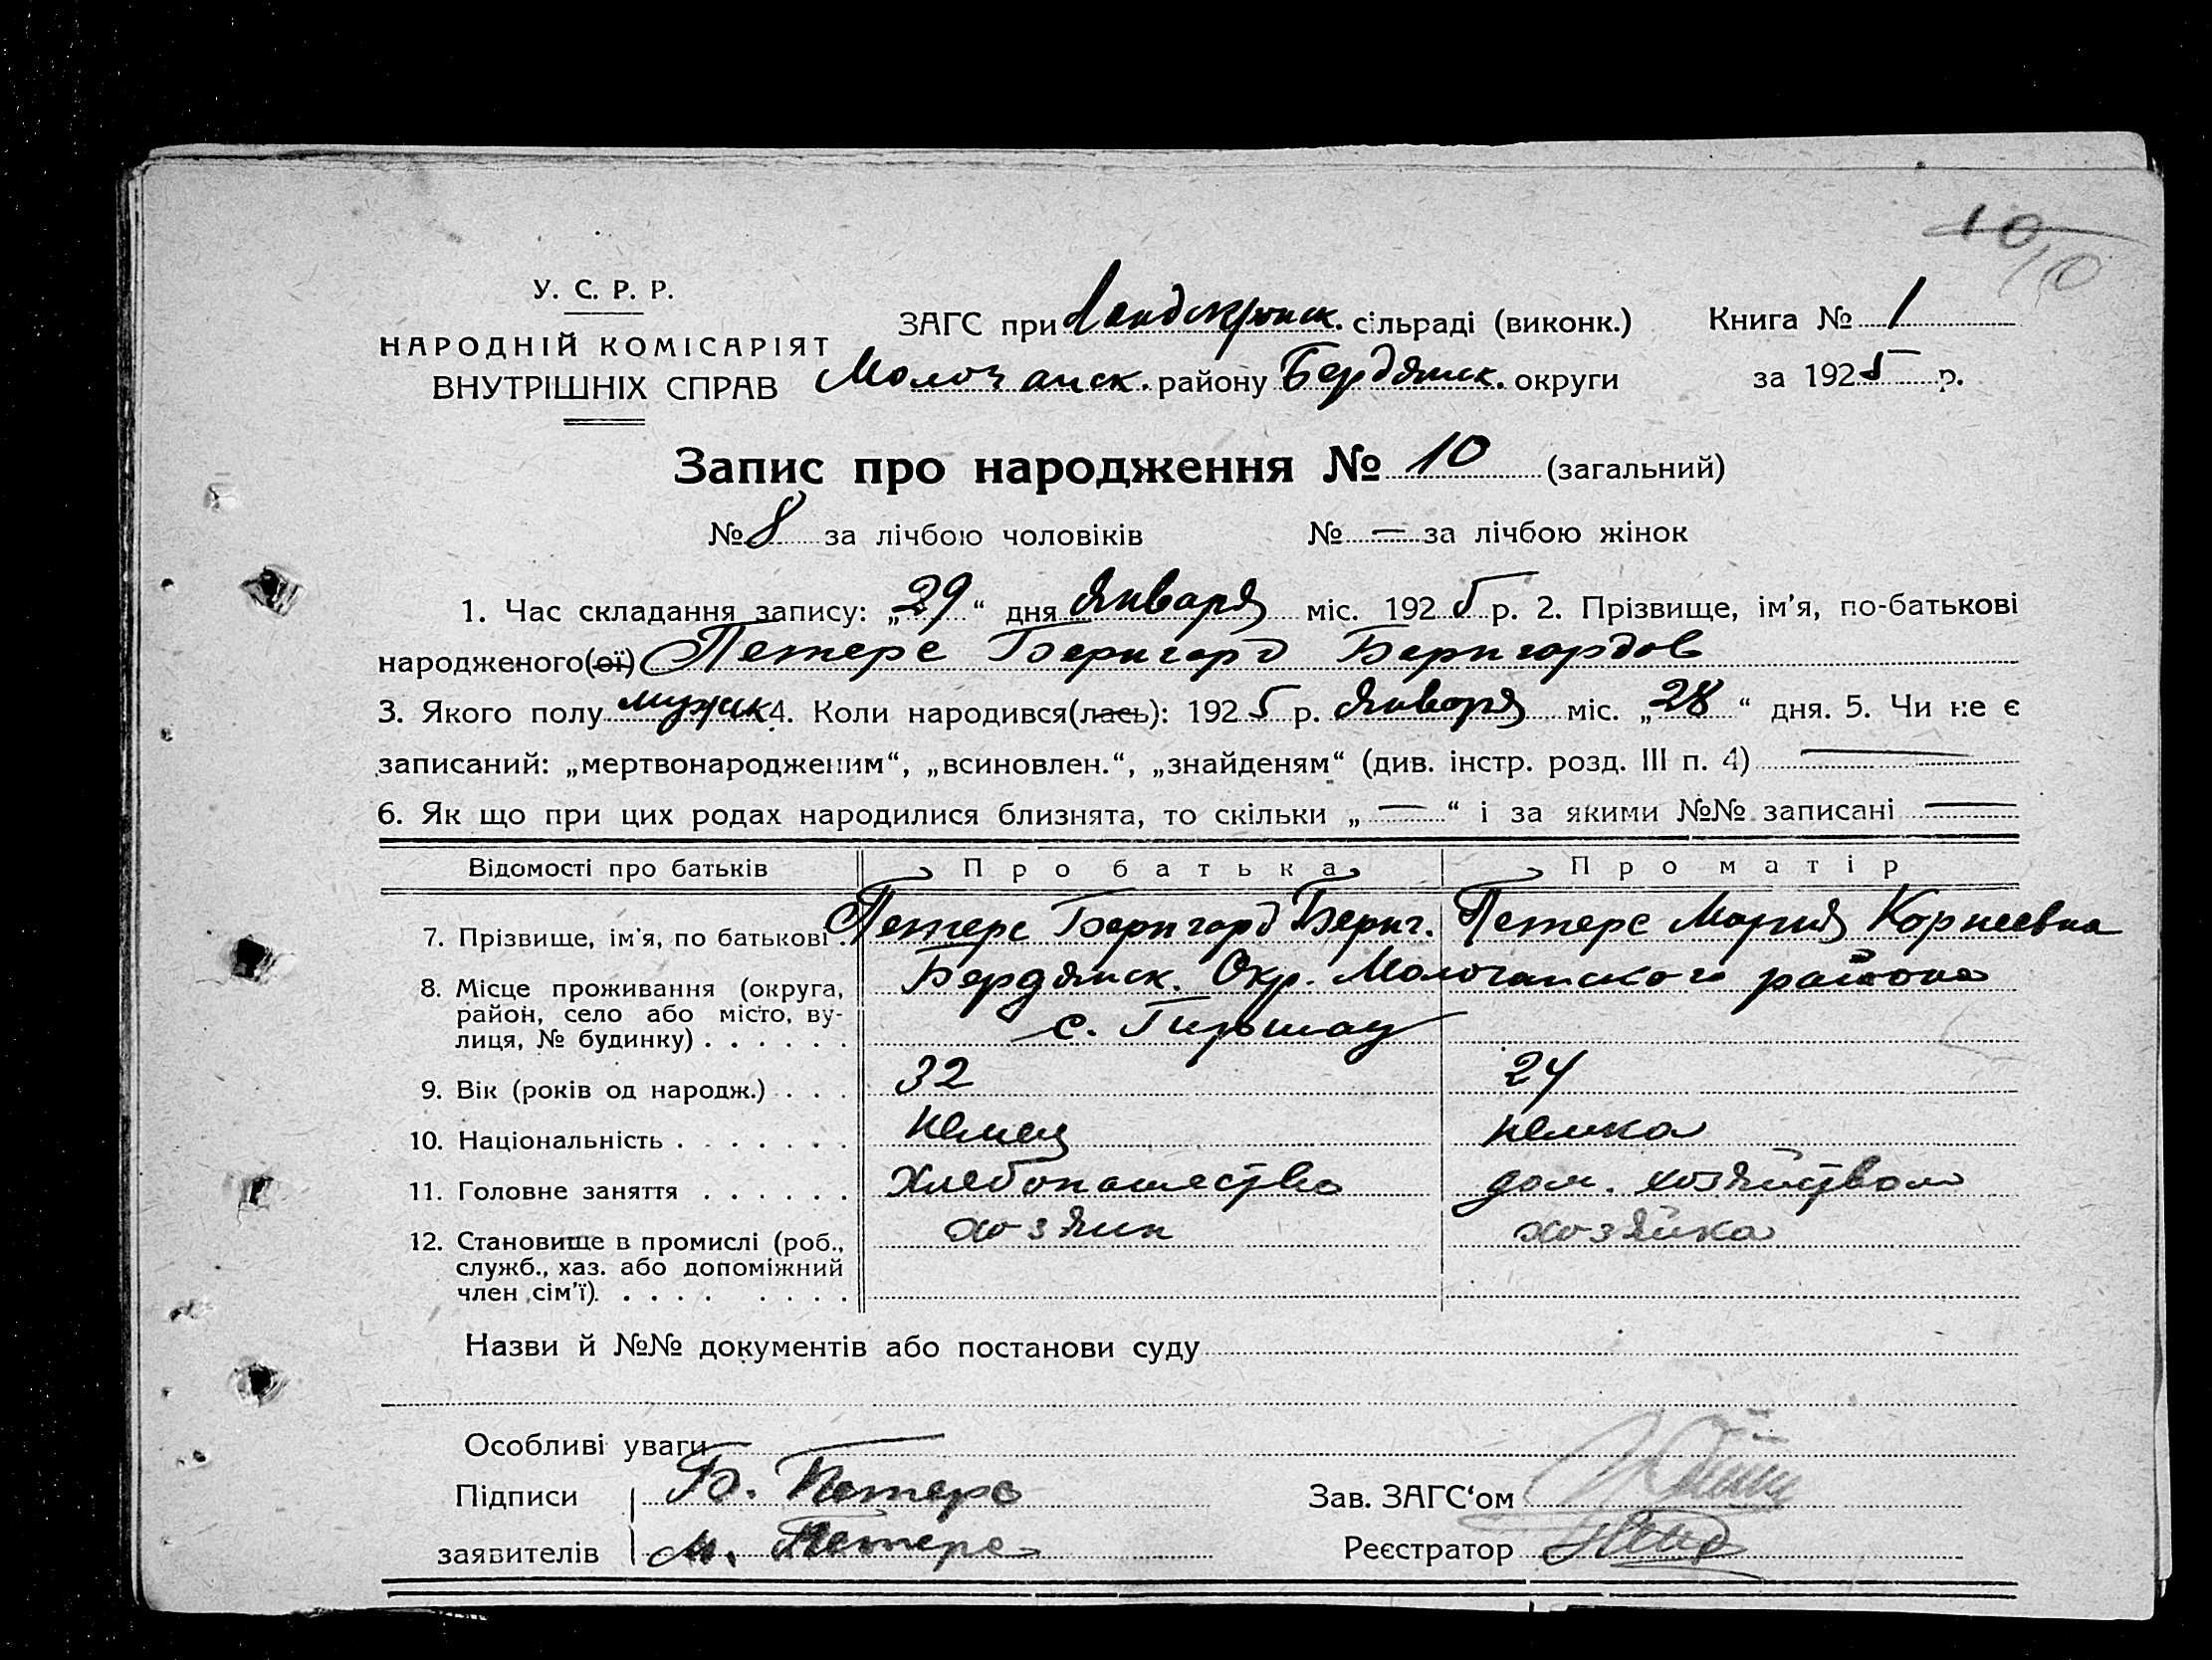 10
10
У. С. Р. Р.
НАРОДНІЙ КОМІСАРІЯТ
ВНУТРІШНІХ СПРАВ
ЗАГС при Ландскронск. сільраді (виконк.)
Молочанск. району Бердянск. округи
Книга № 1
за 1925 р.
Запис про народження № 10 (загальний)
№ 8 за лічбою чоловіків № — за лічбою жінок
1. Час складання запису: „29“ дня Января міс. 1925 р. 2. Прізвище, ім'я, по-батькові
народженого(ої) Петерс Бернгард Бернгардов
3. Якого полу мужск 4. Коли народився(лась): 1925 р. Января міс. „28“ дня. 5. Чи не є
записаний: „мертвонародженим“, „всиновлен.“, „знайденям“ (див. інстр. розд. III п. 4) —
6. Як що при цих родах народилися близнята, то скільки „—“ і за якими №№ записані —
Відомості про батьків Про батька Про матір
7. Прізвище, ім'я, по батькові Петерс Бернгард Бернг. Петерс Мария Корнеевна
8. Місце проживання (округа, Бердянск. Окр. Молочанского района
район, село або місто, ву- с. Гиршау
лиця, № будинку) . . . . . .
9. Вік (років од народж.) . . . 32 24
10. Національність . . . . . . . немец немка
11. Головне заняття . . . . . . Хлебопашество дом. хозяйством
12. Становище в промислі (роб., хозяин хозяйка
служб., хаз. або допоміжний
член сім'ї). . . . . . . . .
Назви й №№ документів або постанови суду
Особливі уваги
Підписи Б. Петерс Зав. ЗАГС'ом
заявителів М. Петерс Реєстратор